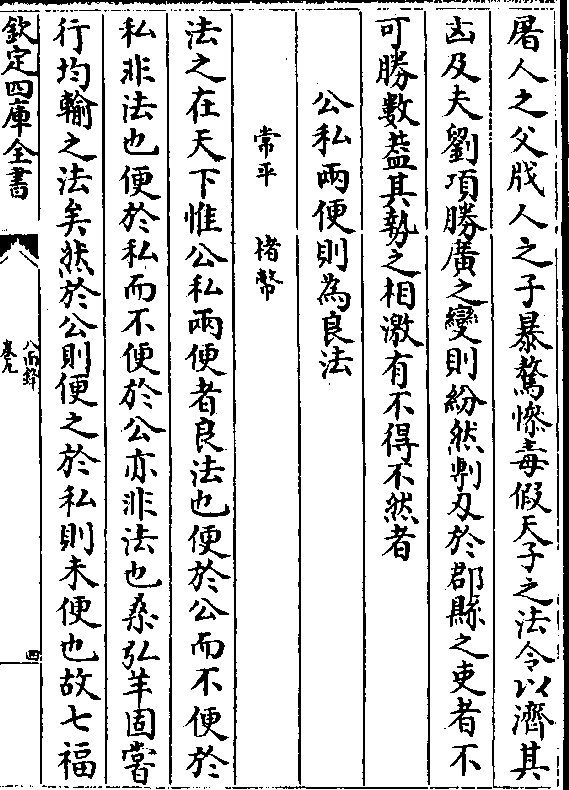 屠人之父戕人之子暴驁慘毒假天子之法令以濟其
凶及夫劉項勝廣之變則紛然剚刃於郡縣之吏者不
可勝數葢其勢之相激有不得不然者
公私兩便則為良法
常平　楮幣
法之在天下惟公私兩便者良法也便於公而不便於
私非法也便於私而不便於公亦非法也桑弘羊固嘗
行均輸之法矣然於公則便之於私則未便也故七福
欽定四庫全書
八面鋒
卷九
四